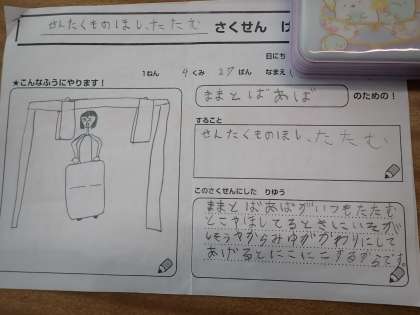 せんたくものほし、たたむ さくせん け
日にち
1ねん 4くみ 27ばん なまえ
★こんなふうにやります！
ままとばあば のための！
すること
せんたくものほし、たたむ
このさくせんにした りゆう
ままとばあばがいつもたたむ
とこやほしてるときにいえが
しそうやからみゆががわりにして
あげるとにこにこするからです。